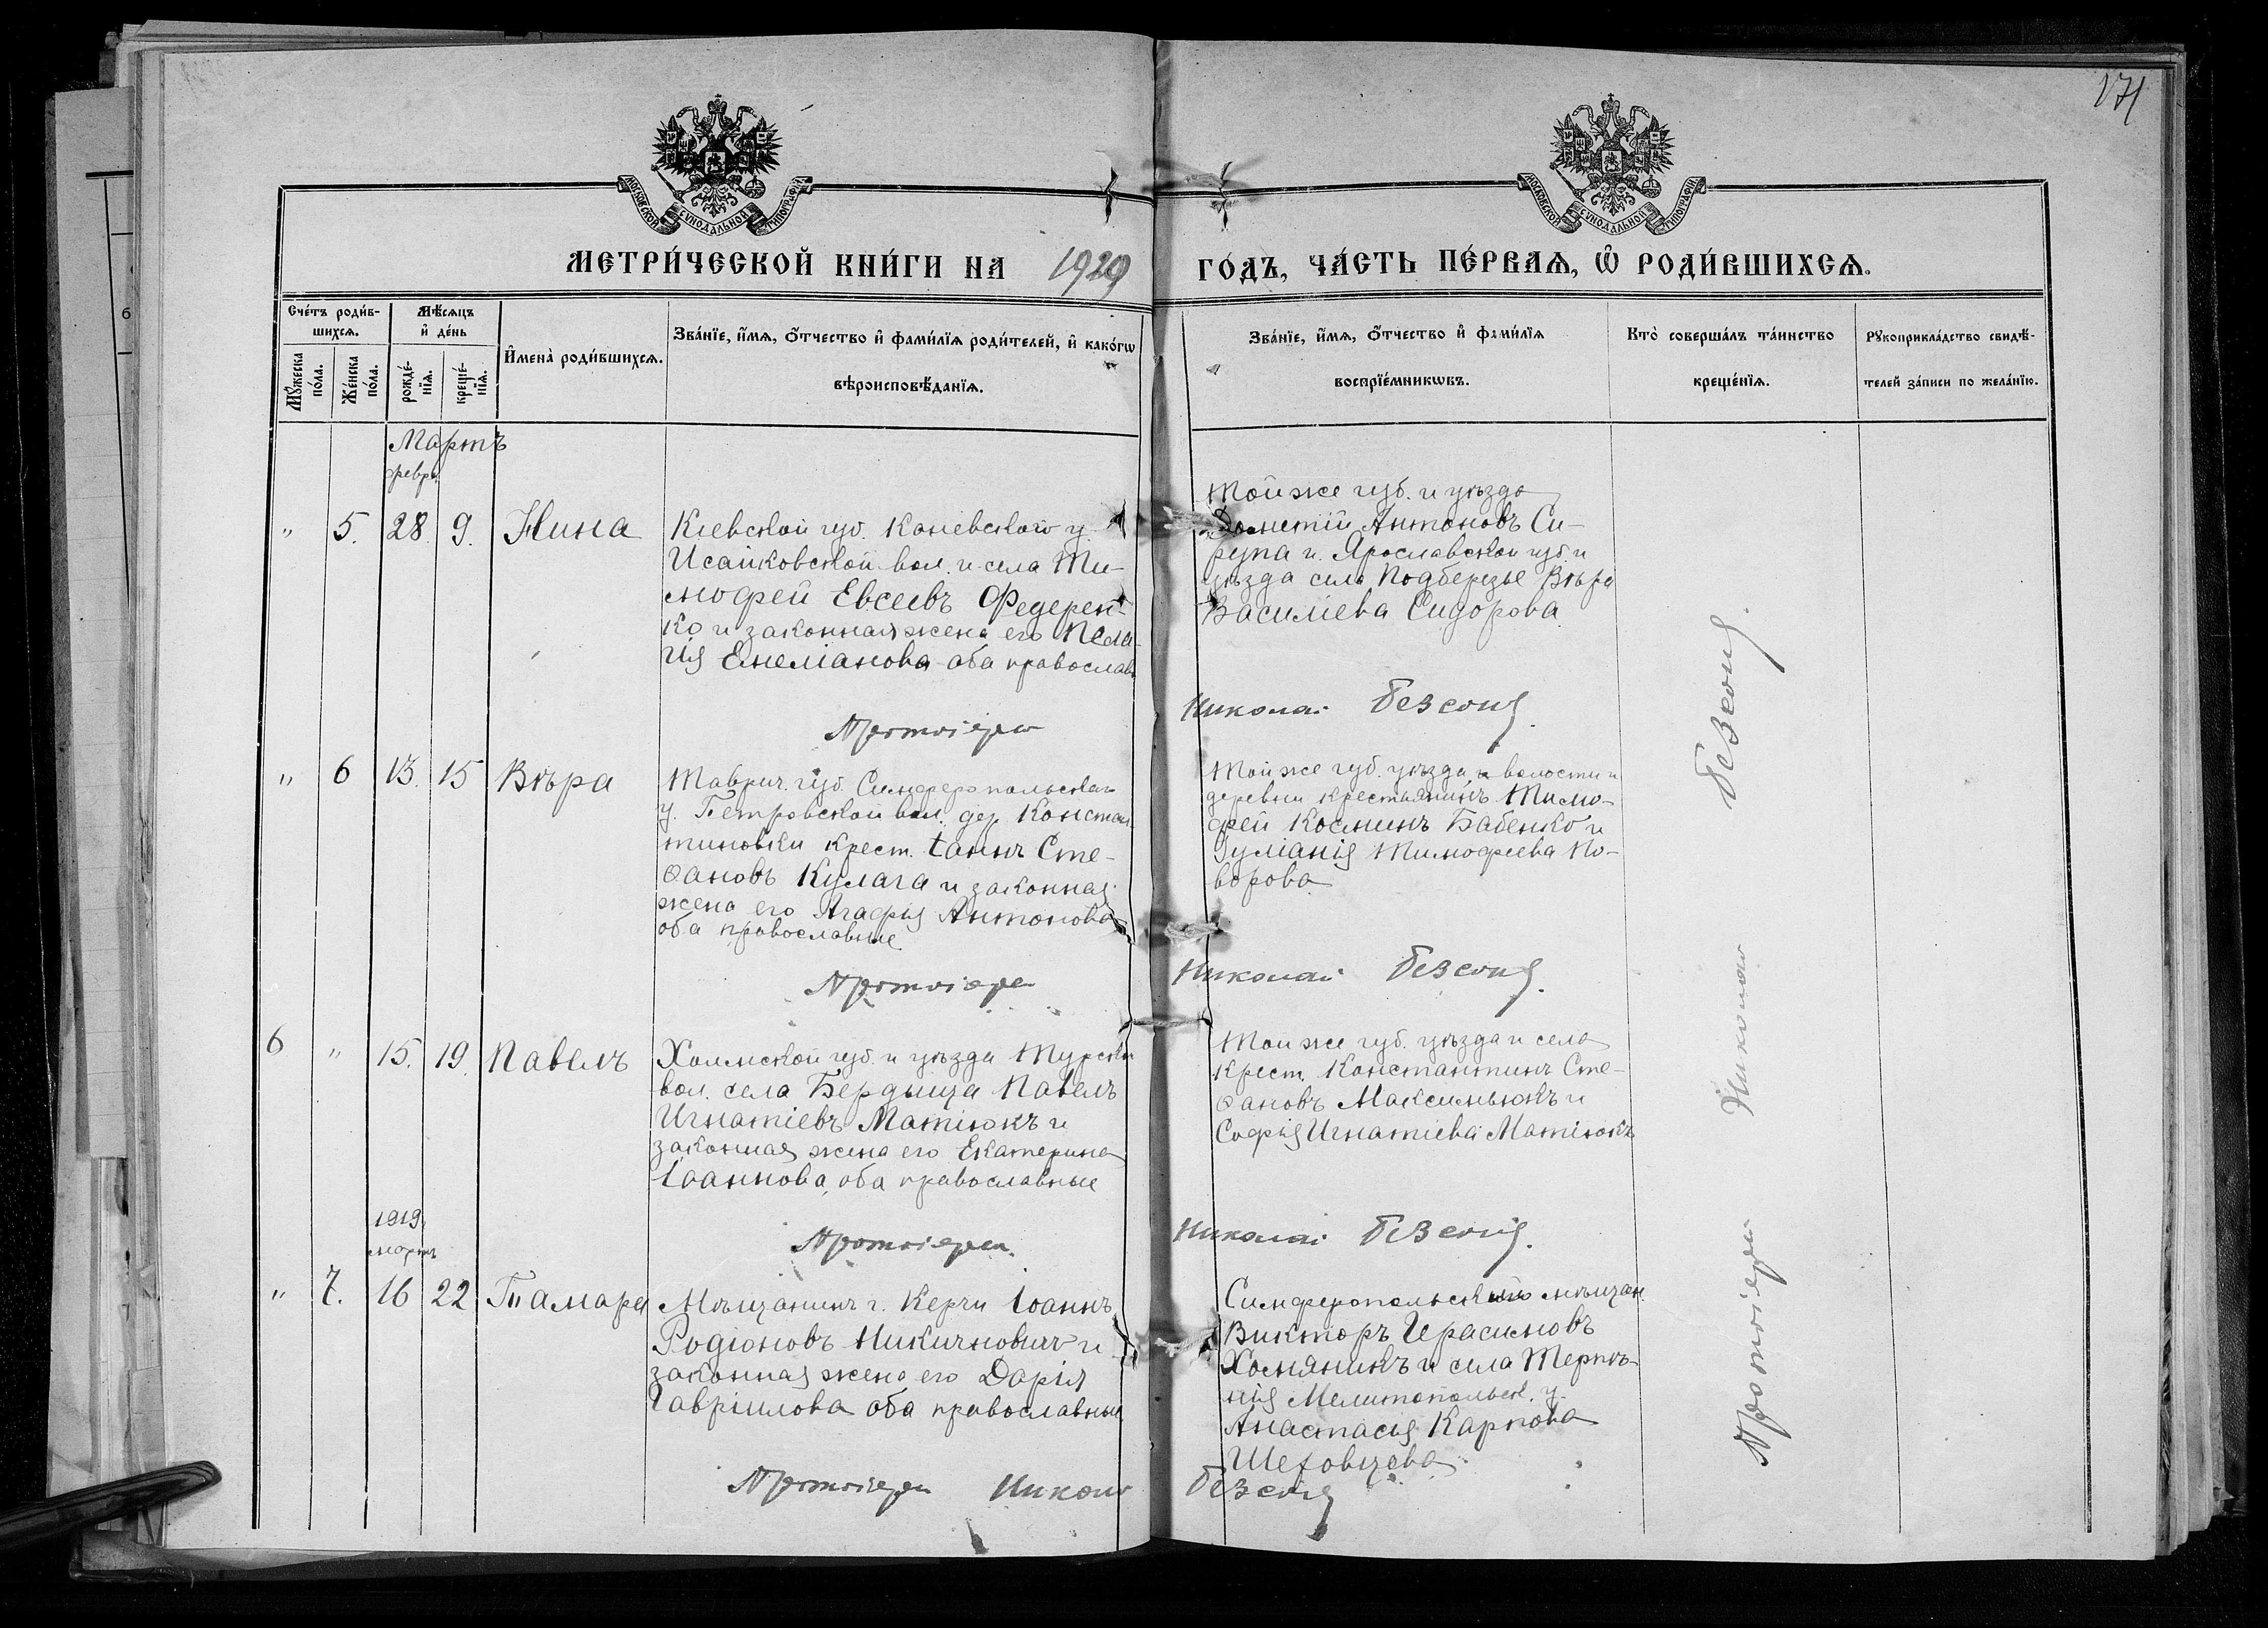 171
МОСКОВСКОЙ СѴНОДАЛЬНОЙ ТИПОГРАФІИ
МОСКОВСКОЙ СѴНОДАЛЬНОЙ ТИПОГРАФІИ
МЕТРИ́ЧЕСКОЙ КНИ́ГИ НА 1920 ГО́ДЪ, ЧА́СТЬ ПЕ́РВАѦ, Ѿ РОДИ́ВШИХСѦ.
Сче́тъ роди́в-
шихсѧ.
Мꙋжеска
по́ла.
Же́нска
по́ла.
Мѣсяцъ
и҆ де́нь
рожде́-
нїѧ.
креще́-
нїѧ.
И҆мена̀ роди́вшихсѧ.
Зва́нїе, и҆́мѧ, ѻ҆́тчество и҆ фами́лїѧ роди́телей, и҆ како́гѡ
вѣроисповѣ́данїѧ.
Зва́нїе, и҆́мѧ, ѻ҆́тчество и҆ фами́лїѧ
воспрїе́мникѡвъ.
Кто̀ соверша́лъ та́инство
креще́нїѧ.
Рꙋкоприкла́дство свидѣ́-
телей за́писи по жела́нїю.
Мартъ
февр.
" 5. 28. 9. Нина
Кіевской губ. Каневскаго у.
Исайковской вол. и села Ти-
мофей Евсеевъ Федерен-
ко и законная жена его Пела-
гія Емеліанова оба православ
Той же губ. и уѣзда
Дометій Антоновъ Си-
рупа и Ярославской губ. и
уѣзда села Подберезье Вѣра
Василіева Сидорова
Протоіерей Николай Безсон
" 6 13. 15 Вѣра
Таврич. губ. Симферопольскаго
у. Петровской вол. дер. Констан
тиновки крест. Іоаннъ Сте-
фановъ Кулага и законная
жена его Агафія Антонова
оба православные
Той же губ. уѣзда и волости и
деревни крестьянинъ Тимо-
фей Косминъ Бабенко и
Іуліанія Тимофеева По-
ворова
Протоіерей Николай Безсон
6 " 15. 19. Павелъ
Холмской губ. и уѣзда Турск
вол. села Бердыща Павелъ
Игнатіевъ Матіюкъ и
законная жена его Екатерина
Іоаннова, оба православные
Той же губ. уѣзда и села
крест. Константинъ Сте-
фановъ Максимьюкъ и
Софія Игнатіева Матіюкъ
Протоіерей Николай Безсон
1919
мартъ
" 7. 16 22 Тамара
Мѣщанинъ г. Керчи Іоаннъ
Родіоновъ и
законная жена его Дарія
Гавріилова оба православные
Симферопольскій мѣщан.
Викторъ Герасимовъ
Хомянинъ и села Терпѣ-
нія Мелитопольск. у.
Анастасія Карпова
Шеховцева
Протоіерей Никола
Безсон
Протоіерей Николай Безсон